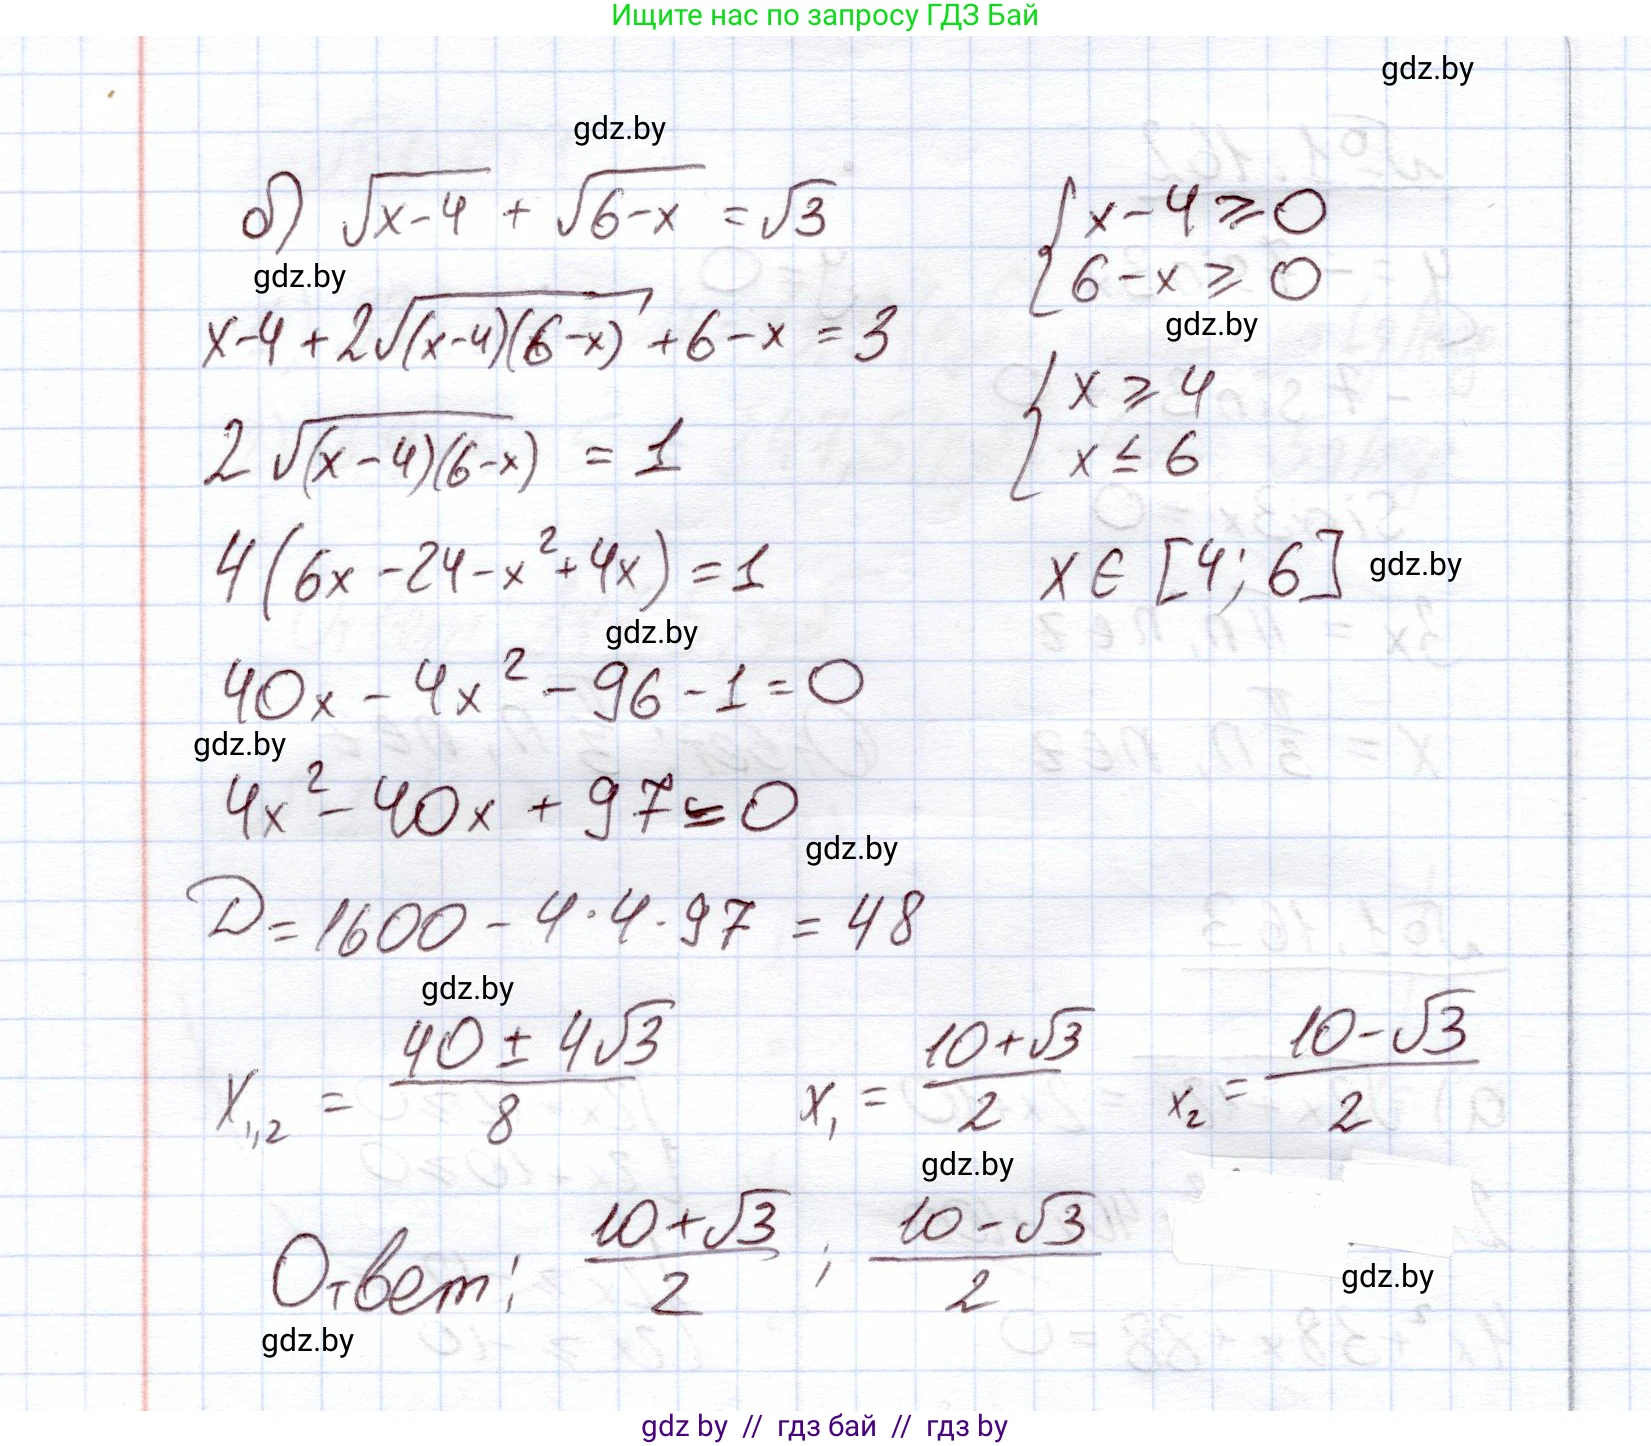 Ищите нас по запросу ГДЗ Бай
gdz.by
gdz.by
б) √(x-4) + √(6-x) = √3
{ x-4 ≥ 0
gdz.by
{ 6-x ≥ 0
x-4 + 2√((x-4)(6-x)) + 6-x = 3
gdz.by
{ x ≥ 4
2√((x-4)(6-x)) = 1
{ x ≤ 6
4(6x-24-x²+4x) = 1
x ∈ [4; 6]
gdz.by
gdz.by
40x - 4x² - 96 - 1 = 0
gdz.by
4x² - 40x + 97 = 0
gdz.by
D = 1600 - 4·4·97 = 48
gdz.by
x₁,₂ = (40 ± 4√3)/8
x₁ = (10+√3)/2
x₂ = (10-√3)/2
gdz.by
Ответ: (10+√3)/2 ; (10-√3)/2
gdz.by
gdz.by
gdz by // гдз бай // гдз by